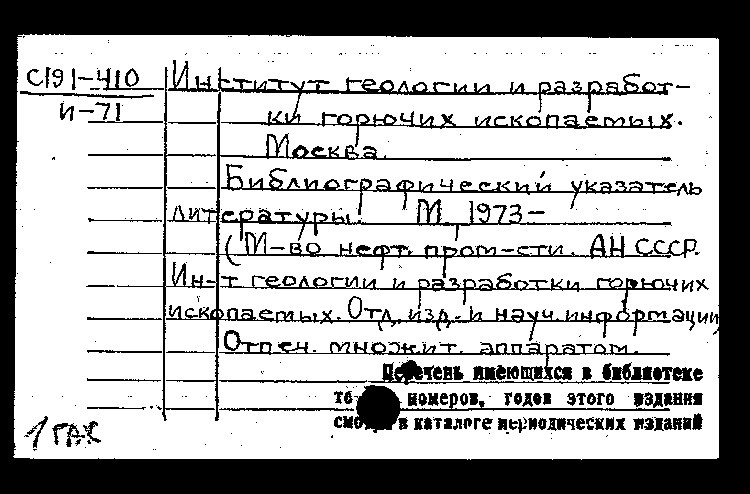 С191-410 Институт геологии и разработ-
И-71 ки горючих ископаемых.
Москва.
Библиографический указатель
литературы. М., 1973-
(М-во нефт. пром-сти. АН СССР.
Ин-т геологии и разработки горючих
ископаемых. Отд. изд. и науч. информации
Отпеч. множит. аппаратом.
Перечень имеющихся в библиотеке
номеров, годов этого издания
смотри в каталоге периодических изданий
1 ГАЖ